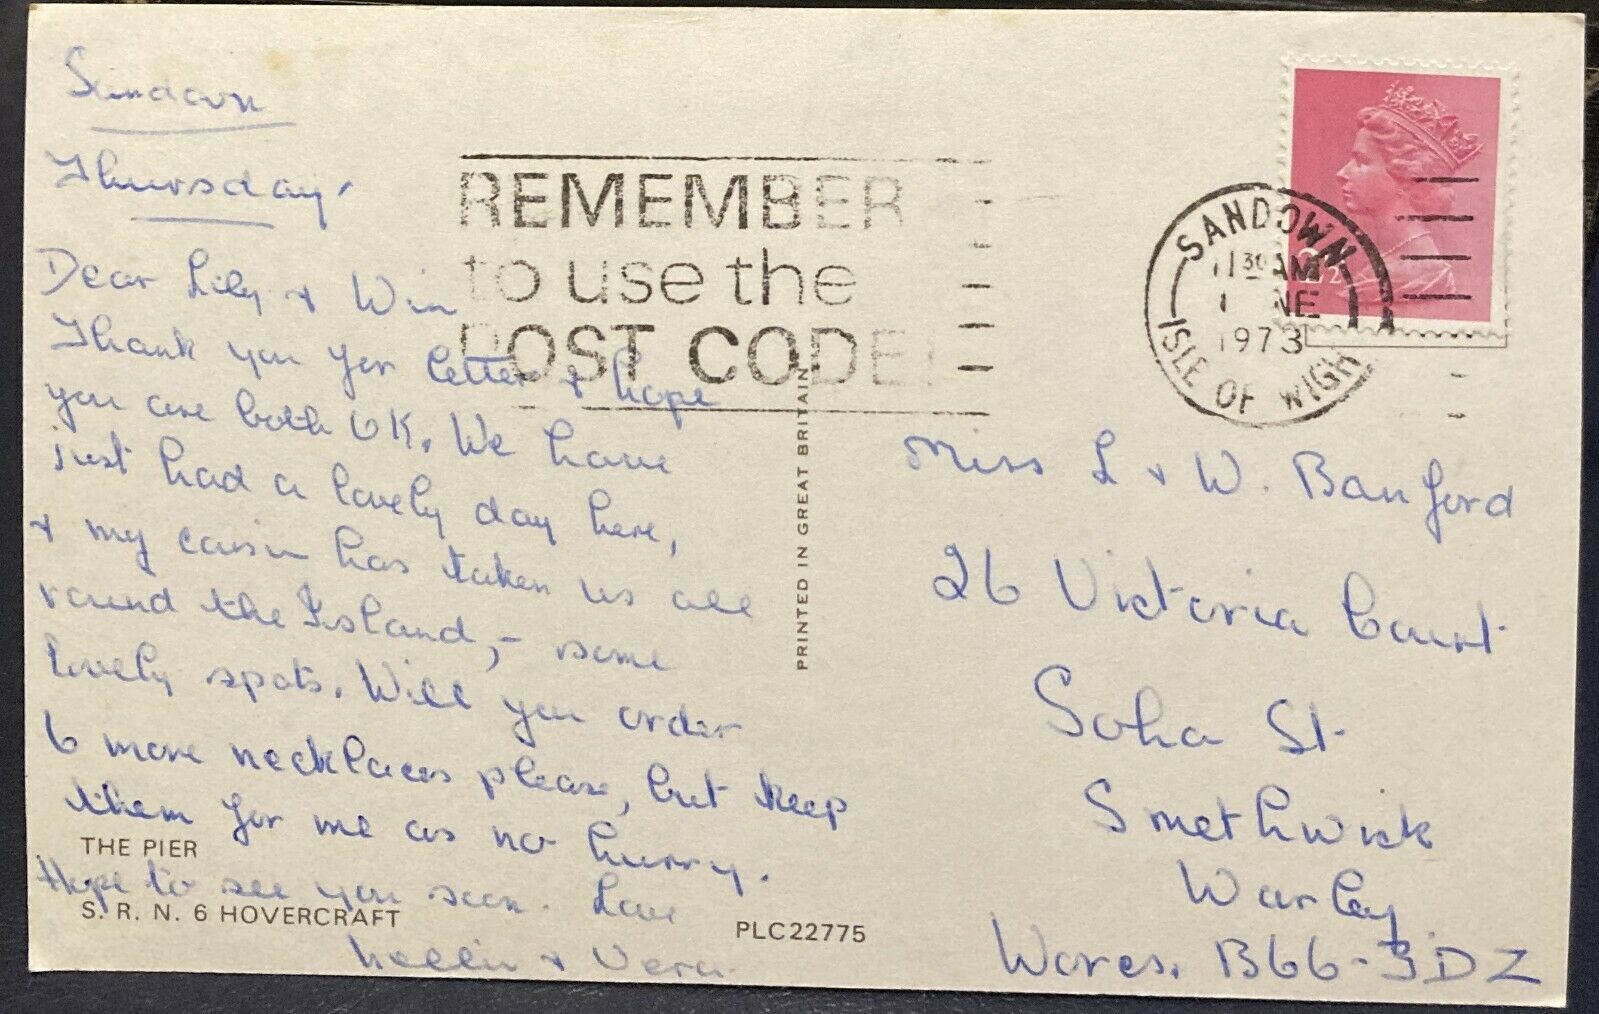 Sandown
Thursday.
Dear Lily & Win
Thank you for letter & hope
you are both OK. We have
just had a lovely day here,
& my cousin has taken us all
round the Island, - some
lovely spots. Will you order
6 more necklaces please, but keep
them for me as no hurry.
Hope to see you soon. Love
Nellie & Vera.
THE PIER
S. R. N. 6 HOVERCRAFT
PLC22775
PRINTED IN GREAT BRITAIN
REMEMBER
to use the
POST CODE
SANDOWN
1130 AM
1 NE
1973
ISLE OF WIGH
2½
Miss L & W. Banford
26 Victoria Court
Soho St.
Smethwick
Warley
Worcs. B66-3DZ